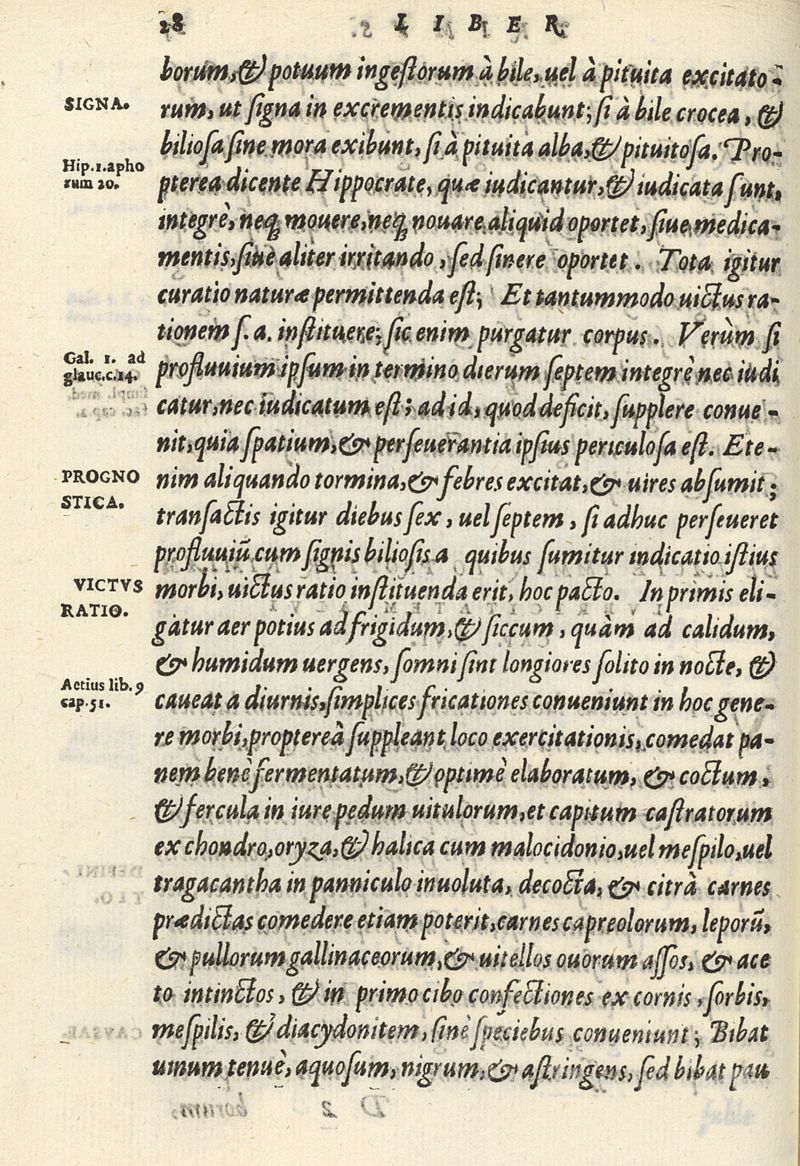 28 LIBER
borum, & potuum ingestorum à bile, uel à pituita excitato-
SIGNA.
rum, ut signa in excrementis indicabunt; si à bile crocea, &
biliosa sine mora exibunt, si à pituita alba, & pituitosa. Pro-
Hip. 1. apho
rum 20.
pterea dicente Hippocrate, quæ iudicantur, & iudicata sunt,
integrè, neq; mouere, neq; nouare aliquid oportet, siue medica-
mentis, siue aliter irritando, sed sinere oportet. Tota igitur
curatio naturæ permittenda est; Et tantummodo uictus ra-
tionem s. a. instituere; sic enim purgatur corpus. Verùm si
Gal. 1. ad
glauc. c. 14.
profluuium ipsum in termino dierum septem integrè nec iudi
catur, nec iudicatum est; ad id, quod deficit, supplere conue-
nit, quia spatium, & perseuerantia ipsius periculosa est. Ete-
PROGNO
STICA.
nim aliquando tormina, & febres excitat, & uires absumit;
transactis igitur diebus sex, uel septem, si adhuc perseueret
profluuiũ cum signis biliosis a quibus sumitur indicatio istius
VICTVS
RATIO.
morbi, uictus ratio instituenda erit, hoc pacto. In primis eli-
gatur aer potius ad frigidum, & siccum, quàm ad calidum,
& humidum uergens, somni sint longiores solito in nocte, &
Aetius lib. 9
cap. 51.
caueat a diurnis, simplices fricationes conueniunt in hoc gene-
re morbi, propterea suppleant loco exercitationis, comedat pa-
nem benè fermentatum, & optimè elaboratum, & coctum,
& fercula in iure pedum uitulorum, et capitum castratorum
ex chondro, oryza, & halica cum malocidonio, uel mespilo, uel
tragacantha in panniculo inuoluta, decocta, & citrà carnes
prædictas comedere etiam poterit, carnes capreolorum, leporũ,
& pullorum gallinaceorum, & uitellos ouorum assos, & ace
to intinctos, & in primo cibo confectiones ex cornis, sorbis,
mespilis, & diacydonitem, sinè speciebus conueniunt; Bibat
uinum tenuè, aquosum, nigrum, & astringens, sed bibat pau